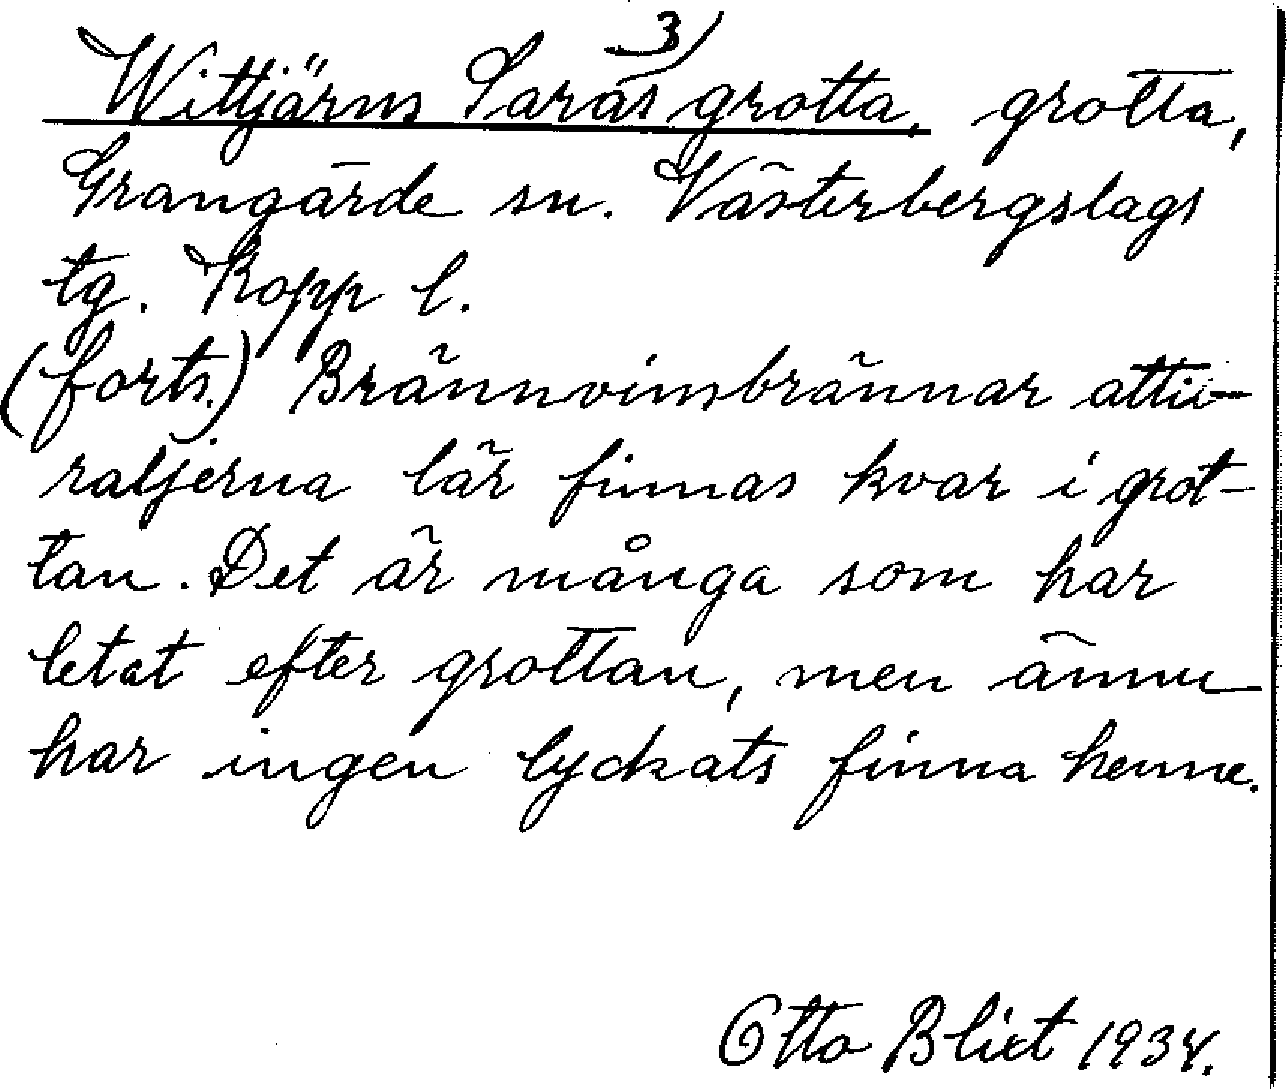 3)
Wittjärns Saras grotta, grotta,
Grangärde sn. Västerbergslags
tg. Kopp l.
(forts.) Brännvinsbrännar attii-
raljerna lär finnas kvar i grot-
tan. Det är många som har
letat efter grottan, men ännu
har ingen lyckats finna henne.
Otto Blixt 1934.